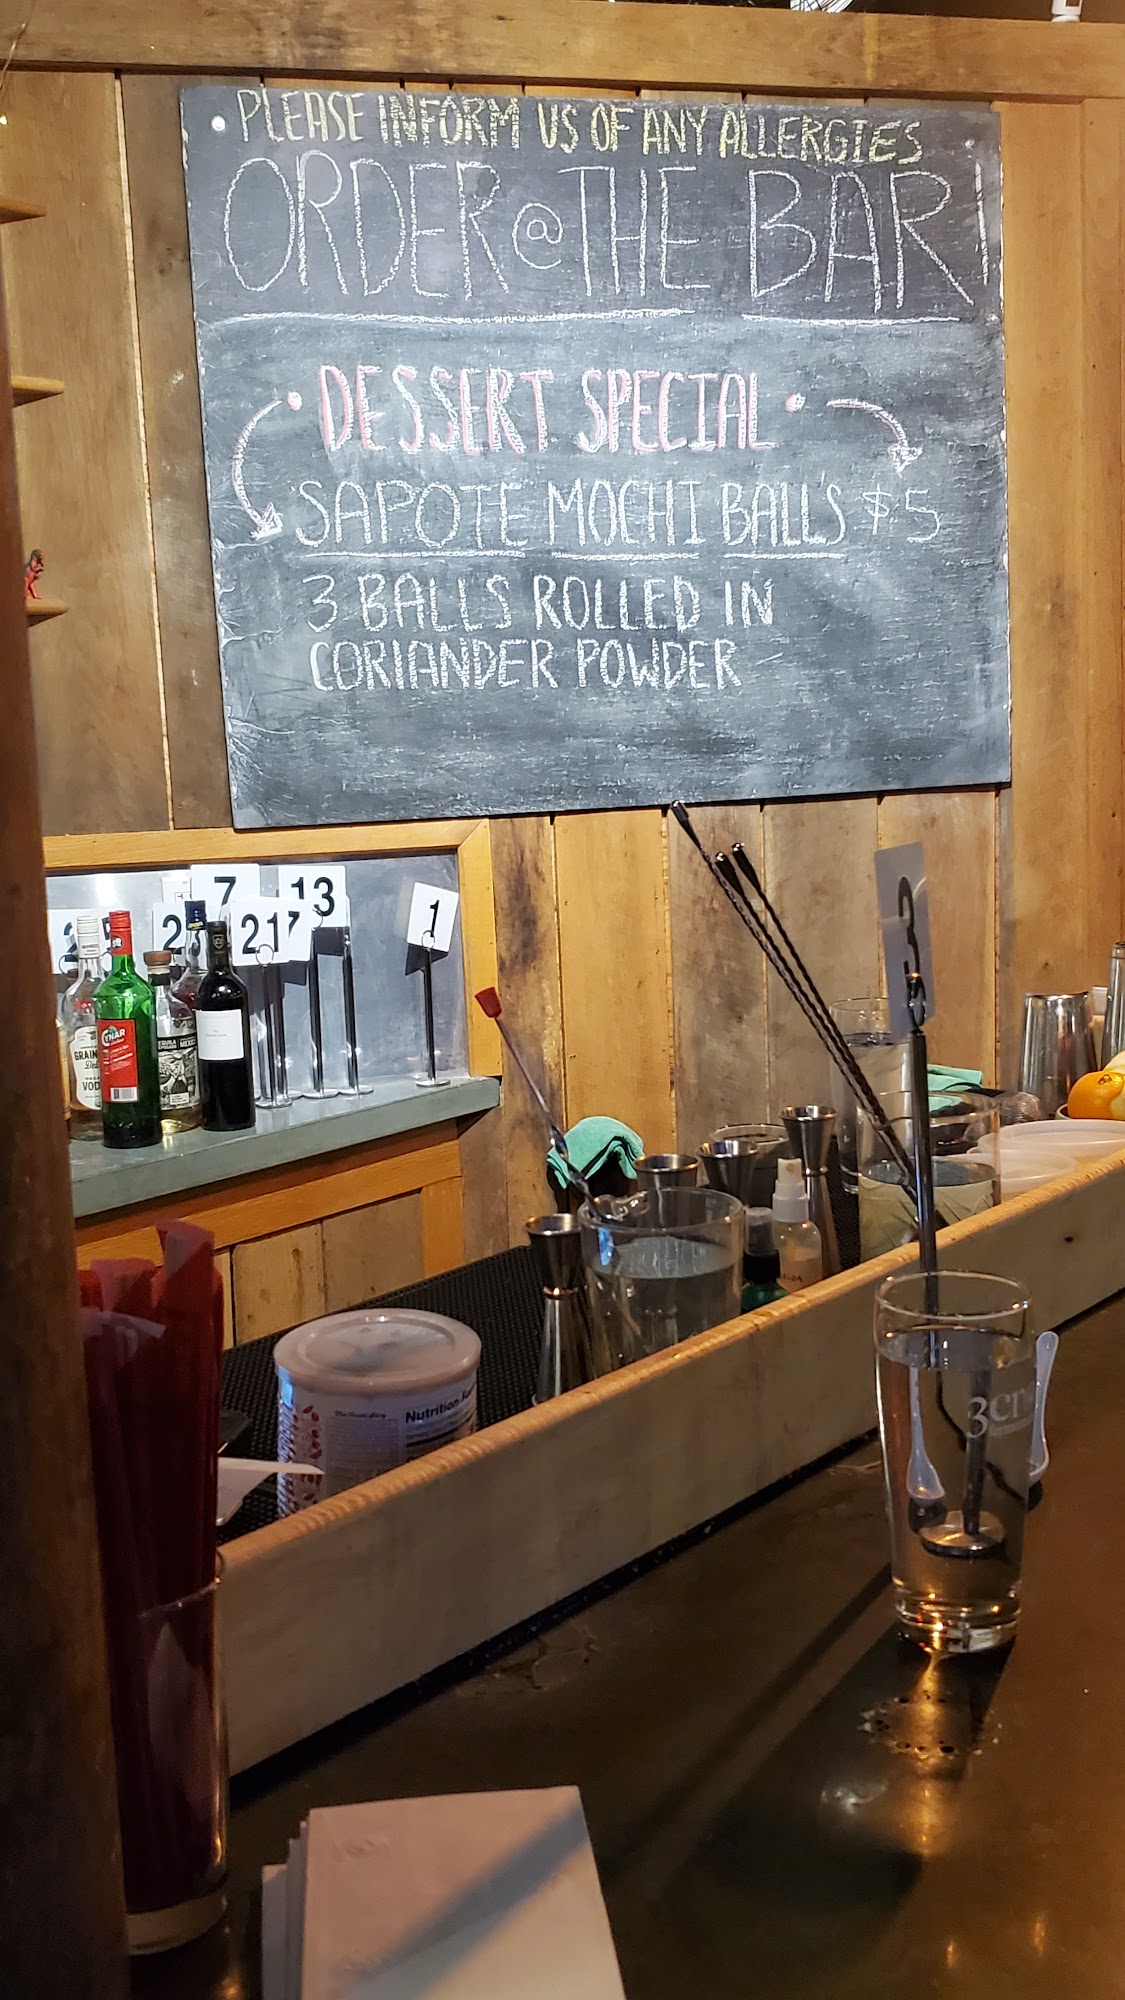 PLEASE INFORM US OF ANY ALLERGIES
ORDER @ THE BAR!
DESSERT SPECIAL
SAPOTE MOCHI BALL'S $5
3 BALL'S ROLLED IN
CORIANDER POWDER
7
13
1
2
21
7
3
CYNAR
GRAIN
VODK
MEXIC
Nutrition Fa
3cr